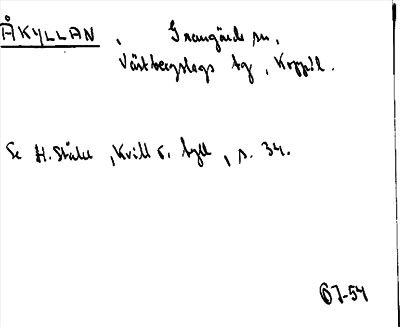 ÅKYLLAN, Grangärde sn,
Västbergslags tg, Kopp.l.
Se H. Ståhl, Kvill o. tyll, s. 34.